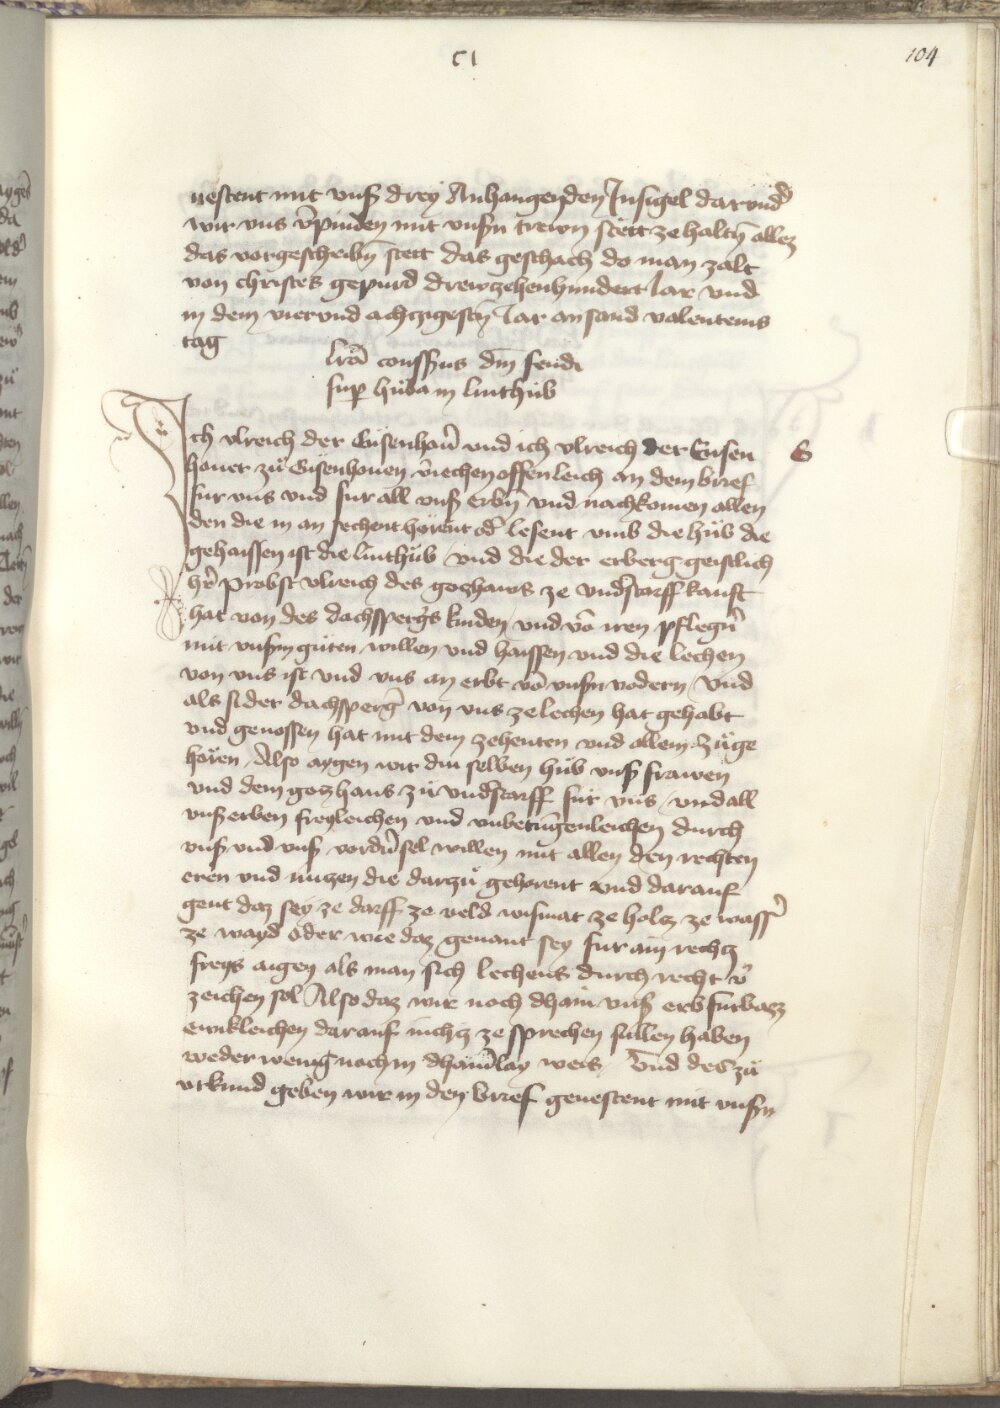 CI
104
uestent mit unß drey Anhangenden Insigel darundˀ
wir uns v̄pinden mit unsn̄ trewn stett ze haltn̄ allez
das vorgeschribn̄ stett das geschach do man zalt
von christes gepurd drewzehenhundert Iar und
in dem vierund achczigestn̄ Iar an sand valenteins
tag
lrā consens̄us dn̄i feudi
sup hŭba in linthŭb
Ich ulreich der Eusenhouˀ und ich ulreich der Eusen
houer zŭ Eusenhouen v̄iechen offenleich an dem brief
fur uns und fur all unß erbn̄ und nachkomen allen
den die in an sechent hörent odˀ lesent umb die hŭb die
gehaissen ist die linthŭb und die der erberg geistlich
hrˀ Probst ulreich des gozhaws ze undˀstorff kauft
hat von des dachspergˀs kinden und vō iren pflegnˀ
mit unsm gŭten willen und haissen und die lechen
von uns ist und uns an erbt vō unsn̄ vodern / und
als si der dachspergˀ von uns ze lechen hat gehabt
und genossen hat mit dem zehenten und allem zŭge
horen / Also aygen wir die selben hŭb unß frawen
und dem gozhaus zŭ undˀstorff fur uns / und all
unß erben freyleichen und unbetūgenleichen durch
unß und unß vordˀn sel willen mit allen den rechten
eren und nuzen die darzŭ gehorent und darauf
gent daz sey ze darff ze veld wismat ze holcz ze wassˀ
ze wayd oder wie daz genant sey fur ain rechcz
freys aigen als man sich lechens durch recht vˀ
zeichen sol Also daz wir noch dhain unß erb furbazz
ewikleichen darauf nichcz ze sprechen sŭllen haben
weder wenig noch in dhainˀlay weis / Und des zŭ
urkund geben wir in den brief geuestent mit unsn̄